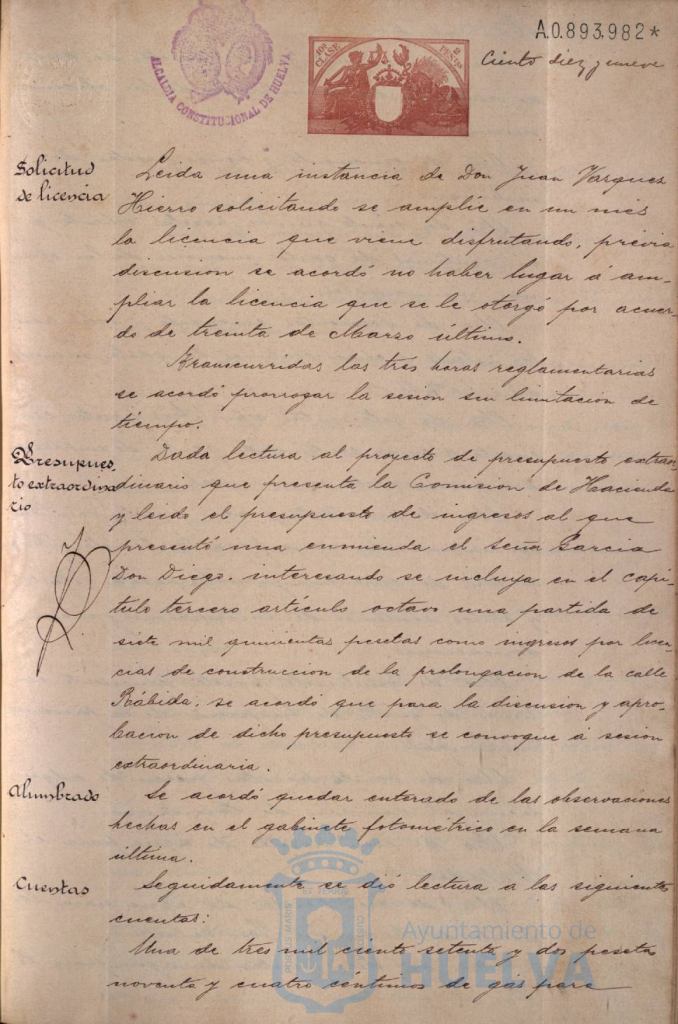 A.0.893,982*
10ª CLASE
2 PESETAS
Ciento diez y nueve
ALCALDIA CONSTITUCIONAL DE HUELVA
Solicitud
de licencia
Leida una instancia de Don Juan Vazquez
Hierro solicitando se amplie en un mes
la licencia que viene disfrutando, previa
discusion se acordó no haber lugar á am-
pliar la licencia que se le otorgó por acuer-
do de treinta de Marzo último.
Transcurridas las tres horas reglamentarias
se acordó prorrogar la sesion sin limitacion de
tiempo.
Presupues-
to extraordina
rio
Dada lectura al proyecto de presupuesto extraor-
dinario que presenta la Comision de Hacienda
y leido el presupuesto de ingresos al que
presentó una enmienda el señor Garcia
Don Diego, interesando se incluya en el capi-
tulo tercero artículo octavo una partida de
siete mil quinientas pesetas como ingresos por licen-
cias de construccion de la prolongacion de la calle
Rábida, se acordó que para la discusion y apro-
bacion de dicho presupuesto se convoque á sesion
extraordinaria.
Alumbrado
Se acordó quedar enterado de las observaciones
hechas en el gabinete fotométrico en la semana
última.
Cuentas
Seguidamente se dió lectura á las siguientes
cuentas:
Una de tres mil ciento setenta y dos pesetas
noventa y cuatro céntimos de gas para
Ayuntamiento de
HUELVA